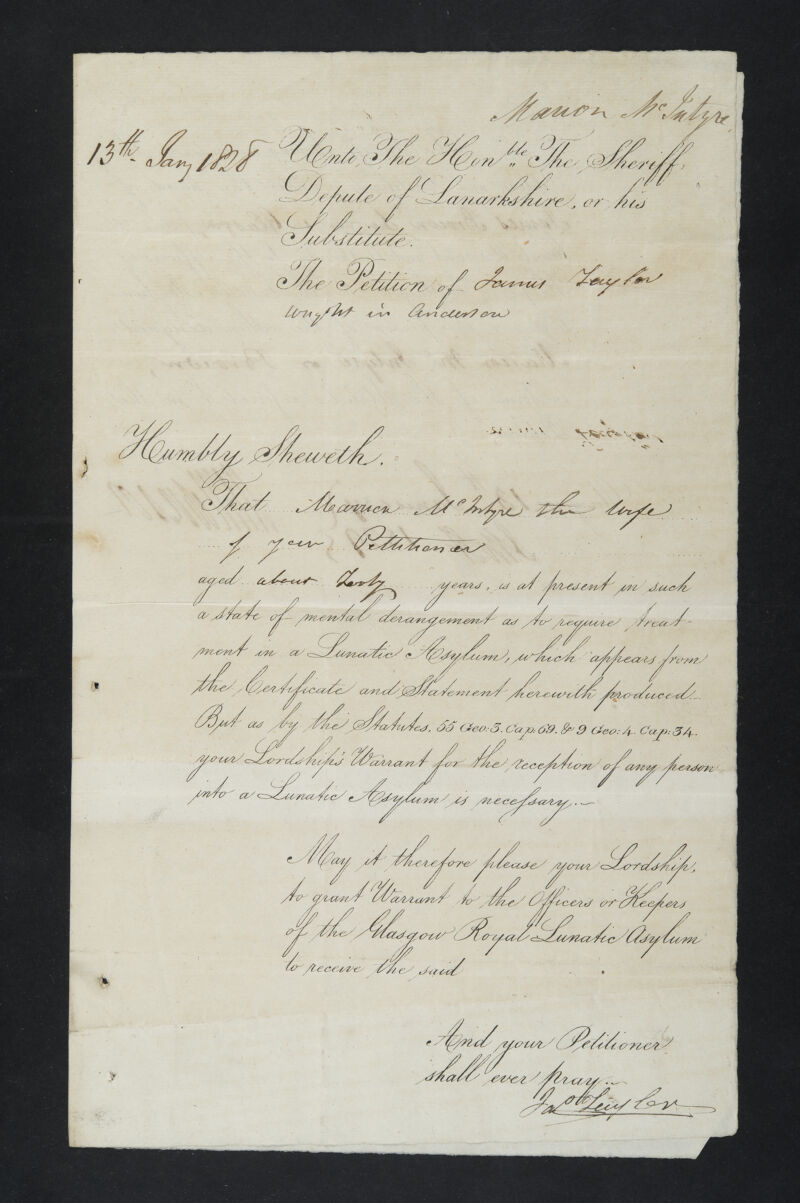 Marion McIntyre
13th Jany 1828
Unto The Honble The Sheriff
Depute of Lanarkshire, or his
Substitute.
The Petition of James Taylor
wright in Anderson
Humbly Sheweth.
That Marrion McIntyre the wife
of your Pettitioner
aged about Forty years, is at present in such
a state of mental derangement as to require treat-
ment in a Lunatic Asylum, which appears from
the Certificate and Statement herewith produced
But as by the Statutes, 55 Geo: 3. Cap: 69. & 9 Geo: 4. Cap: 34.
your Lordship's Warrant for the reception of any person
into a Lunatic Asylum is necessary.
May it therefore please your Lordship,
to grant Warrant to the Officers or Keepers
of the Glasgow Royal Lunatic Asylum
to receive the said
And your Petitioner
shall ever pray
Jas Taylor